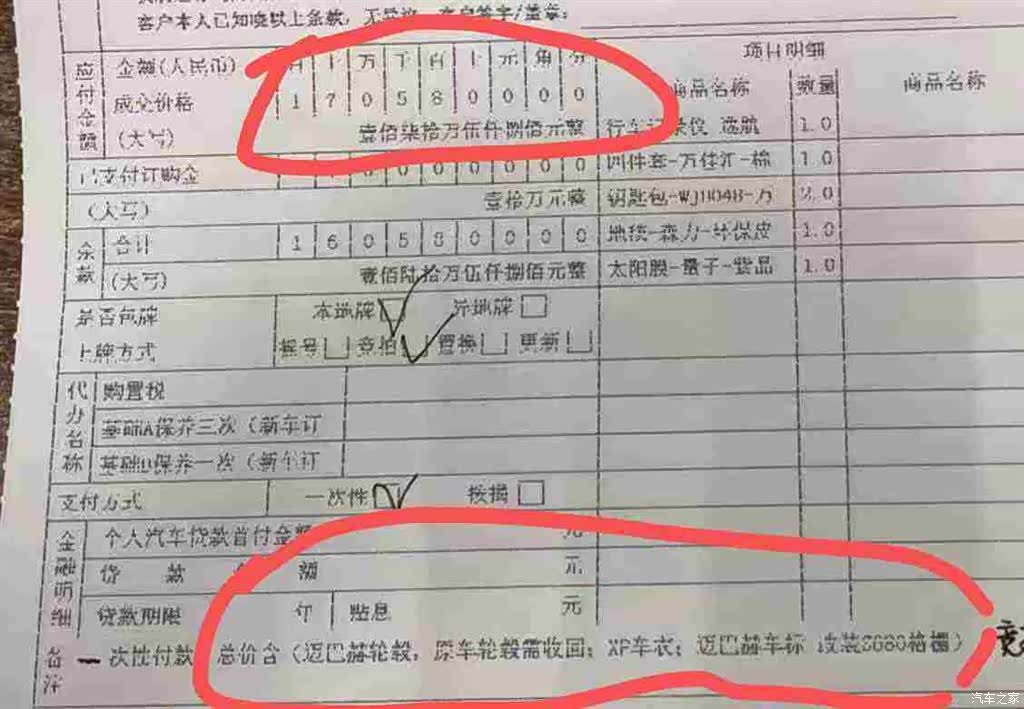 客户本人已知晓以上条款，无异议，客户签字/盖章：
应付金额 金额(人民币) 百 十 万 千 百 十 元 角 分 项目明细
成交价格 1 7 0 5 8 0 0 0 0 商品名称 数量 商品名称
(大写) 壹佰柒拾万伍仟捌佰元整 行车记录仪 选航 1.0
已支付订购金 0 0 0 0 0 0 四件套-万佳汇-棉 1.0
(大写) 壹拾万元整 钥匙包-WJ1048-万 2.0
余款 合计 1 6 0 5 8 0 0 0 0 地毯-森力-环保皮 1.0
(大写) 壹佰陆拾万伍仟捌佰元整 太阳膜-量子-紫晶 1.0
是否包牌 本地牌 异地牌
上牌方式 摇号 竞拍 置换 更新
代办名称 购置税
基础A保养三次（新车订
基础B保养一次（新车订
支付方式 一次性 按揭
金融明细 个人汽车贷款首付金额 元
贷 款 金 额 元
贷款期限 年 贴息 元
备注 一次性付款 总价含（迈巴赫轮毂，原车轮毂需收回；XP车衣；迈巴赫车标 改装S680格栅）
汽车之家